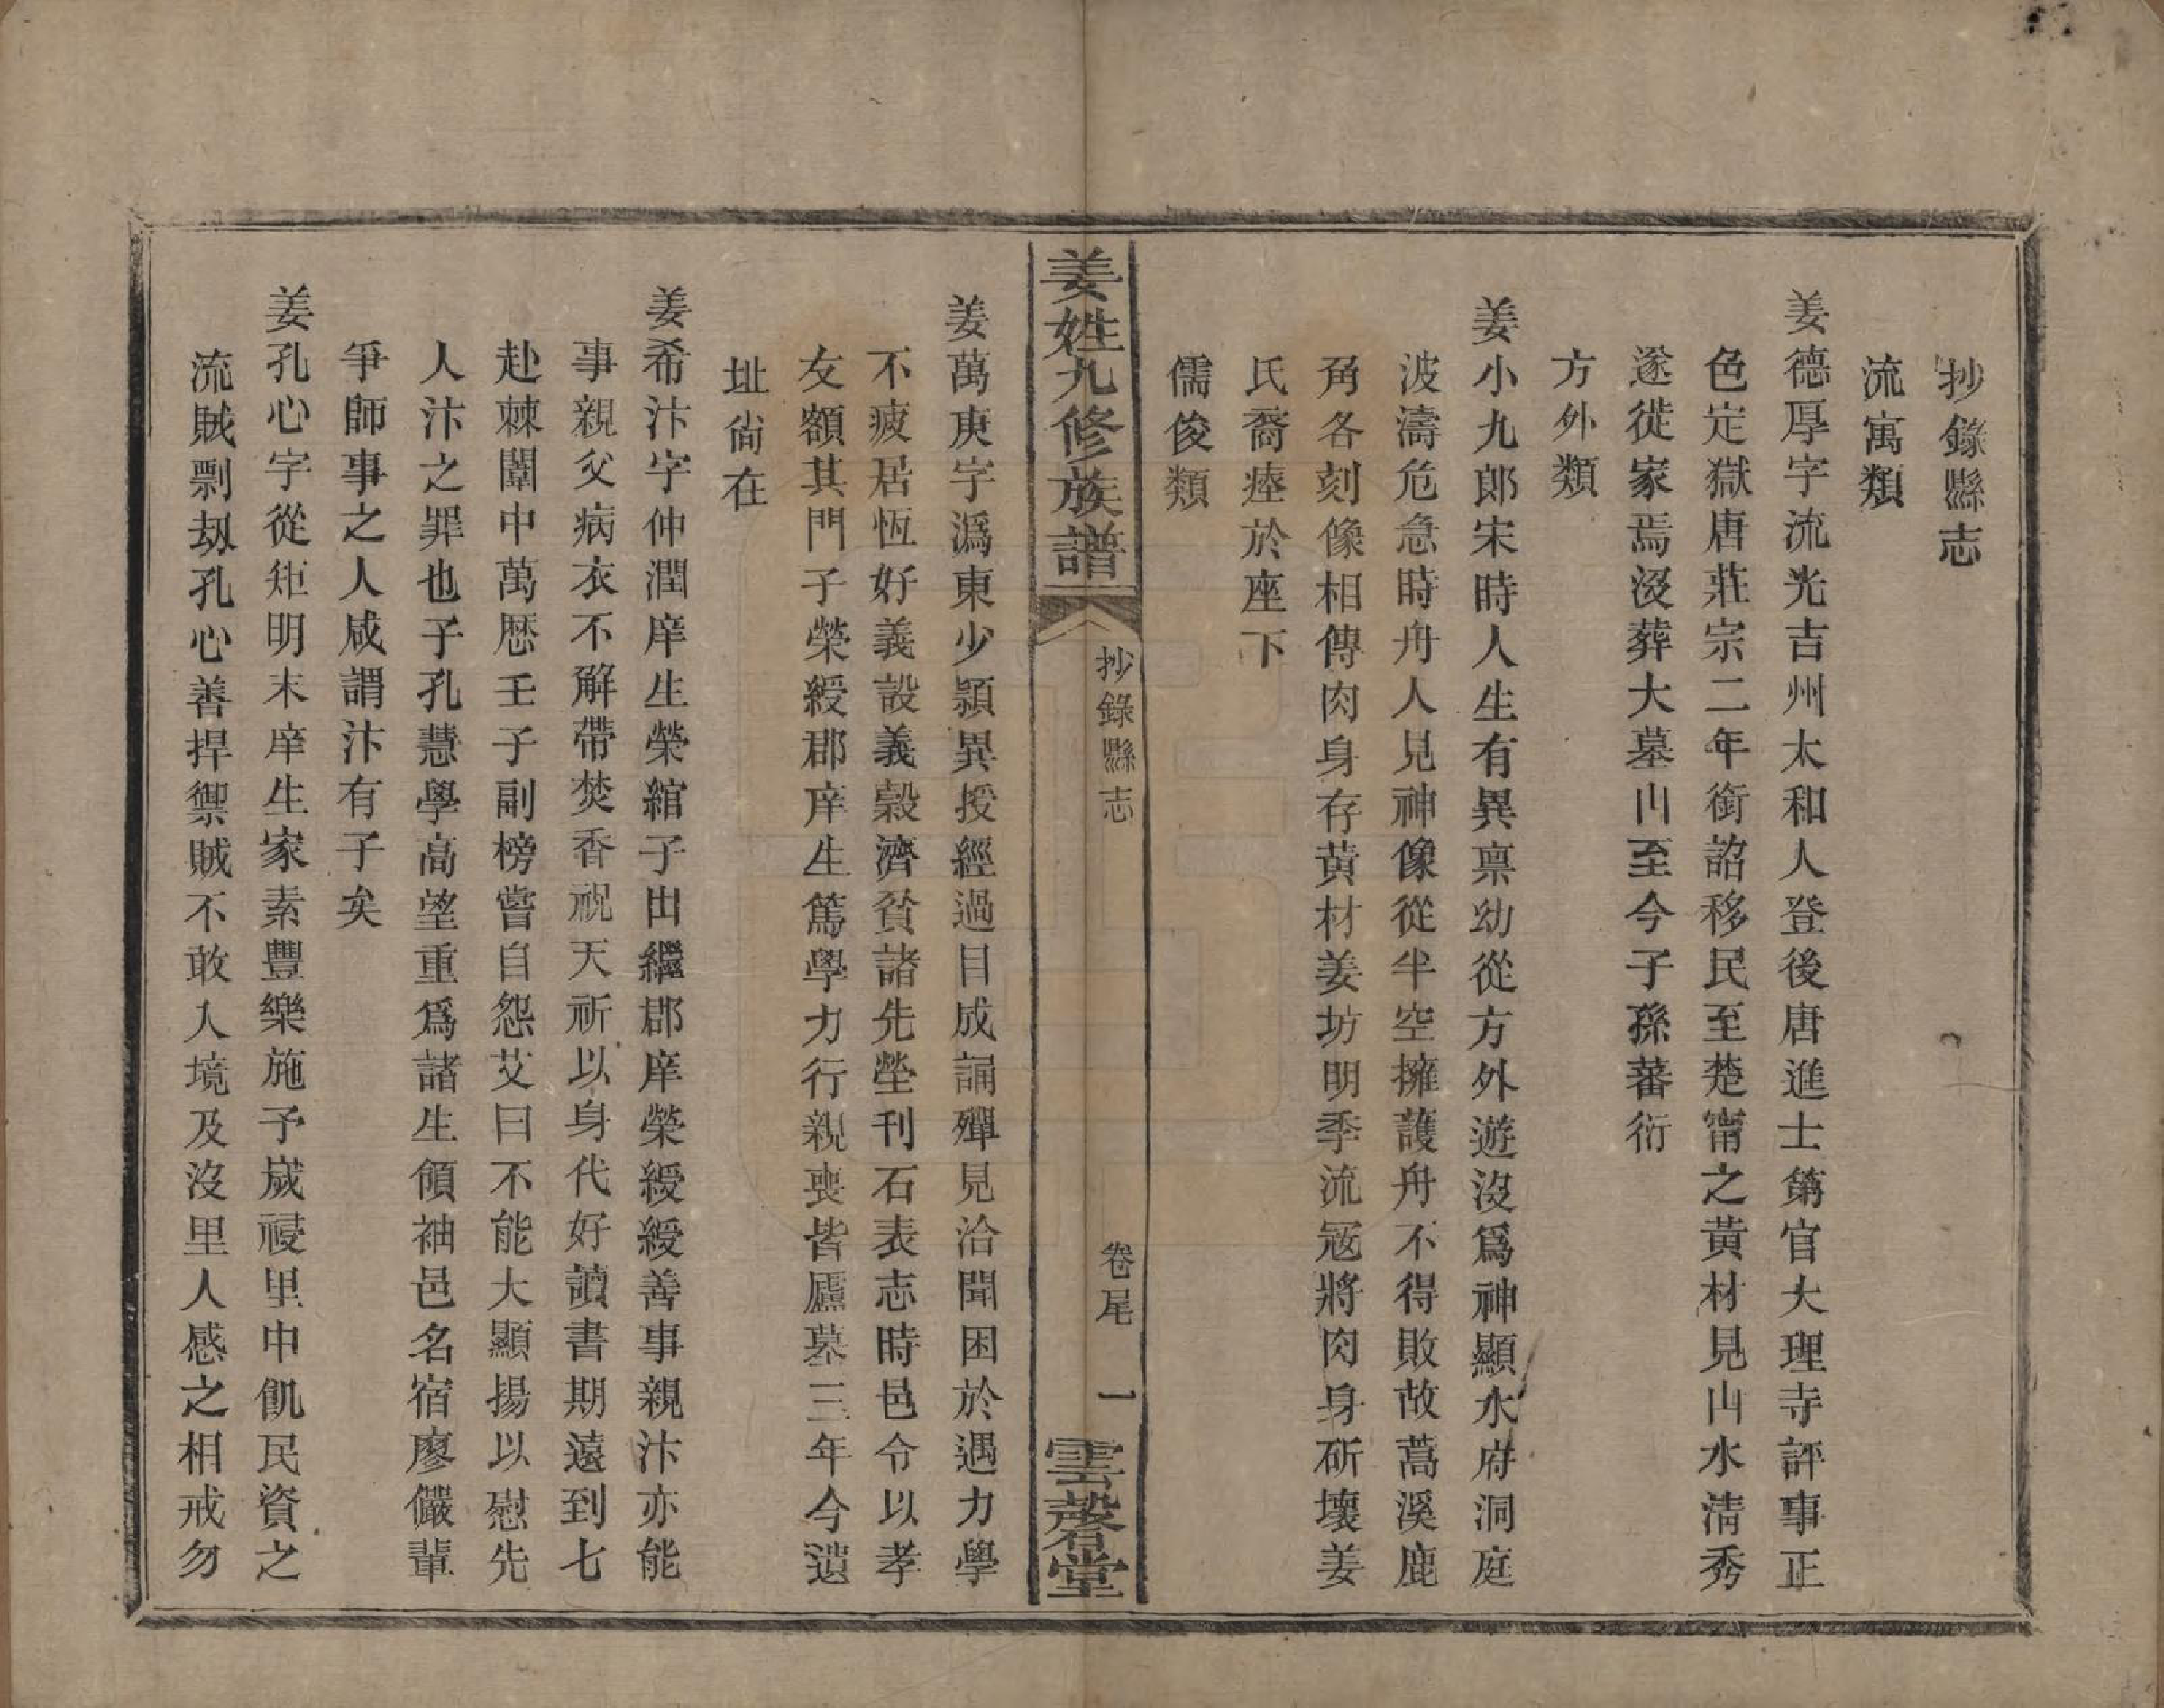 抄錄縣志
流寓類
姜德厚字流光吉州太和人登後唐進士第官大理寺評事正
色定獄唐莊宗二年銜詔移民至楚甯之黃材見山水淸秀
遂徙家焉沒葬大墓山至今子孫蕃衍
方外類
姜小九郎宋時人生有異禀幼從方外遊沒爲神顯水府洞庭
波濤危急時舟人見神像從半空擁護舟不得敗故蒿溪鹿
角各刻像相傳肉身存黃材姜坊明季流寇將肉身斫壞姜
氏裔瘞於座下
儒俊類
姜姓九修族譜
抄錄縣志
卷尾
一
雲磬堂
姜萬庚字潙東少穎異授經過目成誦殫見洽聞困於遇力學
不疲居恆好義設義穀濟貧諸先塋刊石表志時邑令以孝
友額其門子榮綬郡庠生篤學力行親喪皆廬墓三年今遺
址尙在
姜希汴字仲潤庠生榮綰子出繼郡庠榮綬綬善事親汴亦能
事親父病衣不解帶焚香祝天祈以身代好讀書期遠到七
赴棘闈中萬歷壬子副榜嘗自怨艾曰不能大顯揚以慰先
人汴之罪也子孔慧學高望重爲諸生領袖邑名宿廖儼輩
爭師事之人咸謂汴有子矣
姜孔心字從矩明末庠生家素豐樂施予歲祲里中飢民資之
流賊剽刼孔心善捍禦賊不敢入境及沒里人感之相戒勿